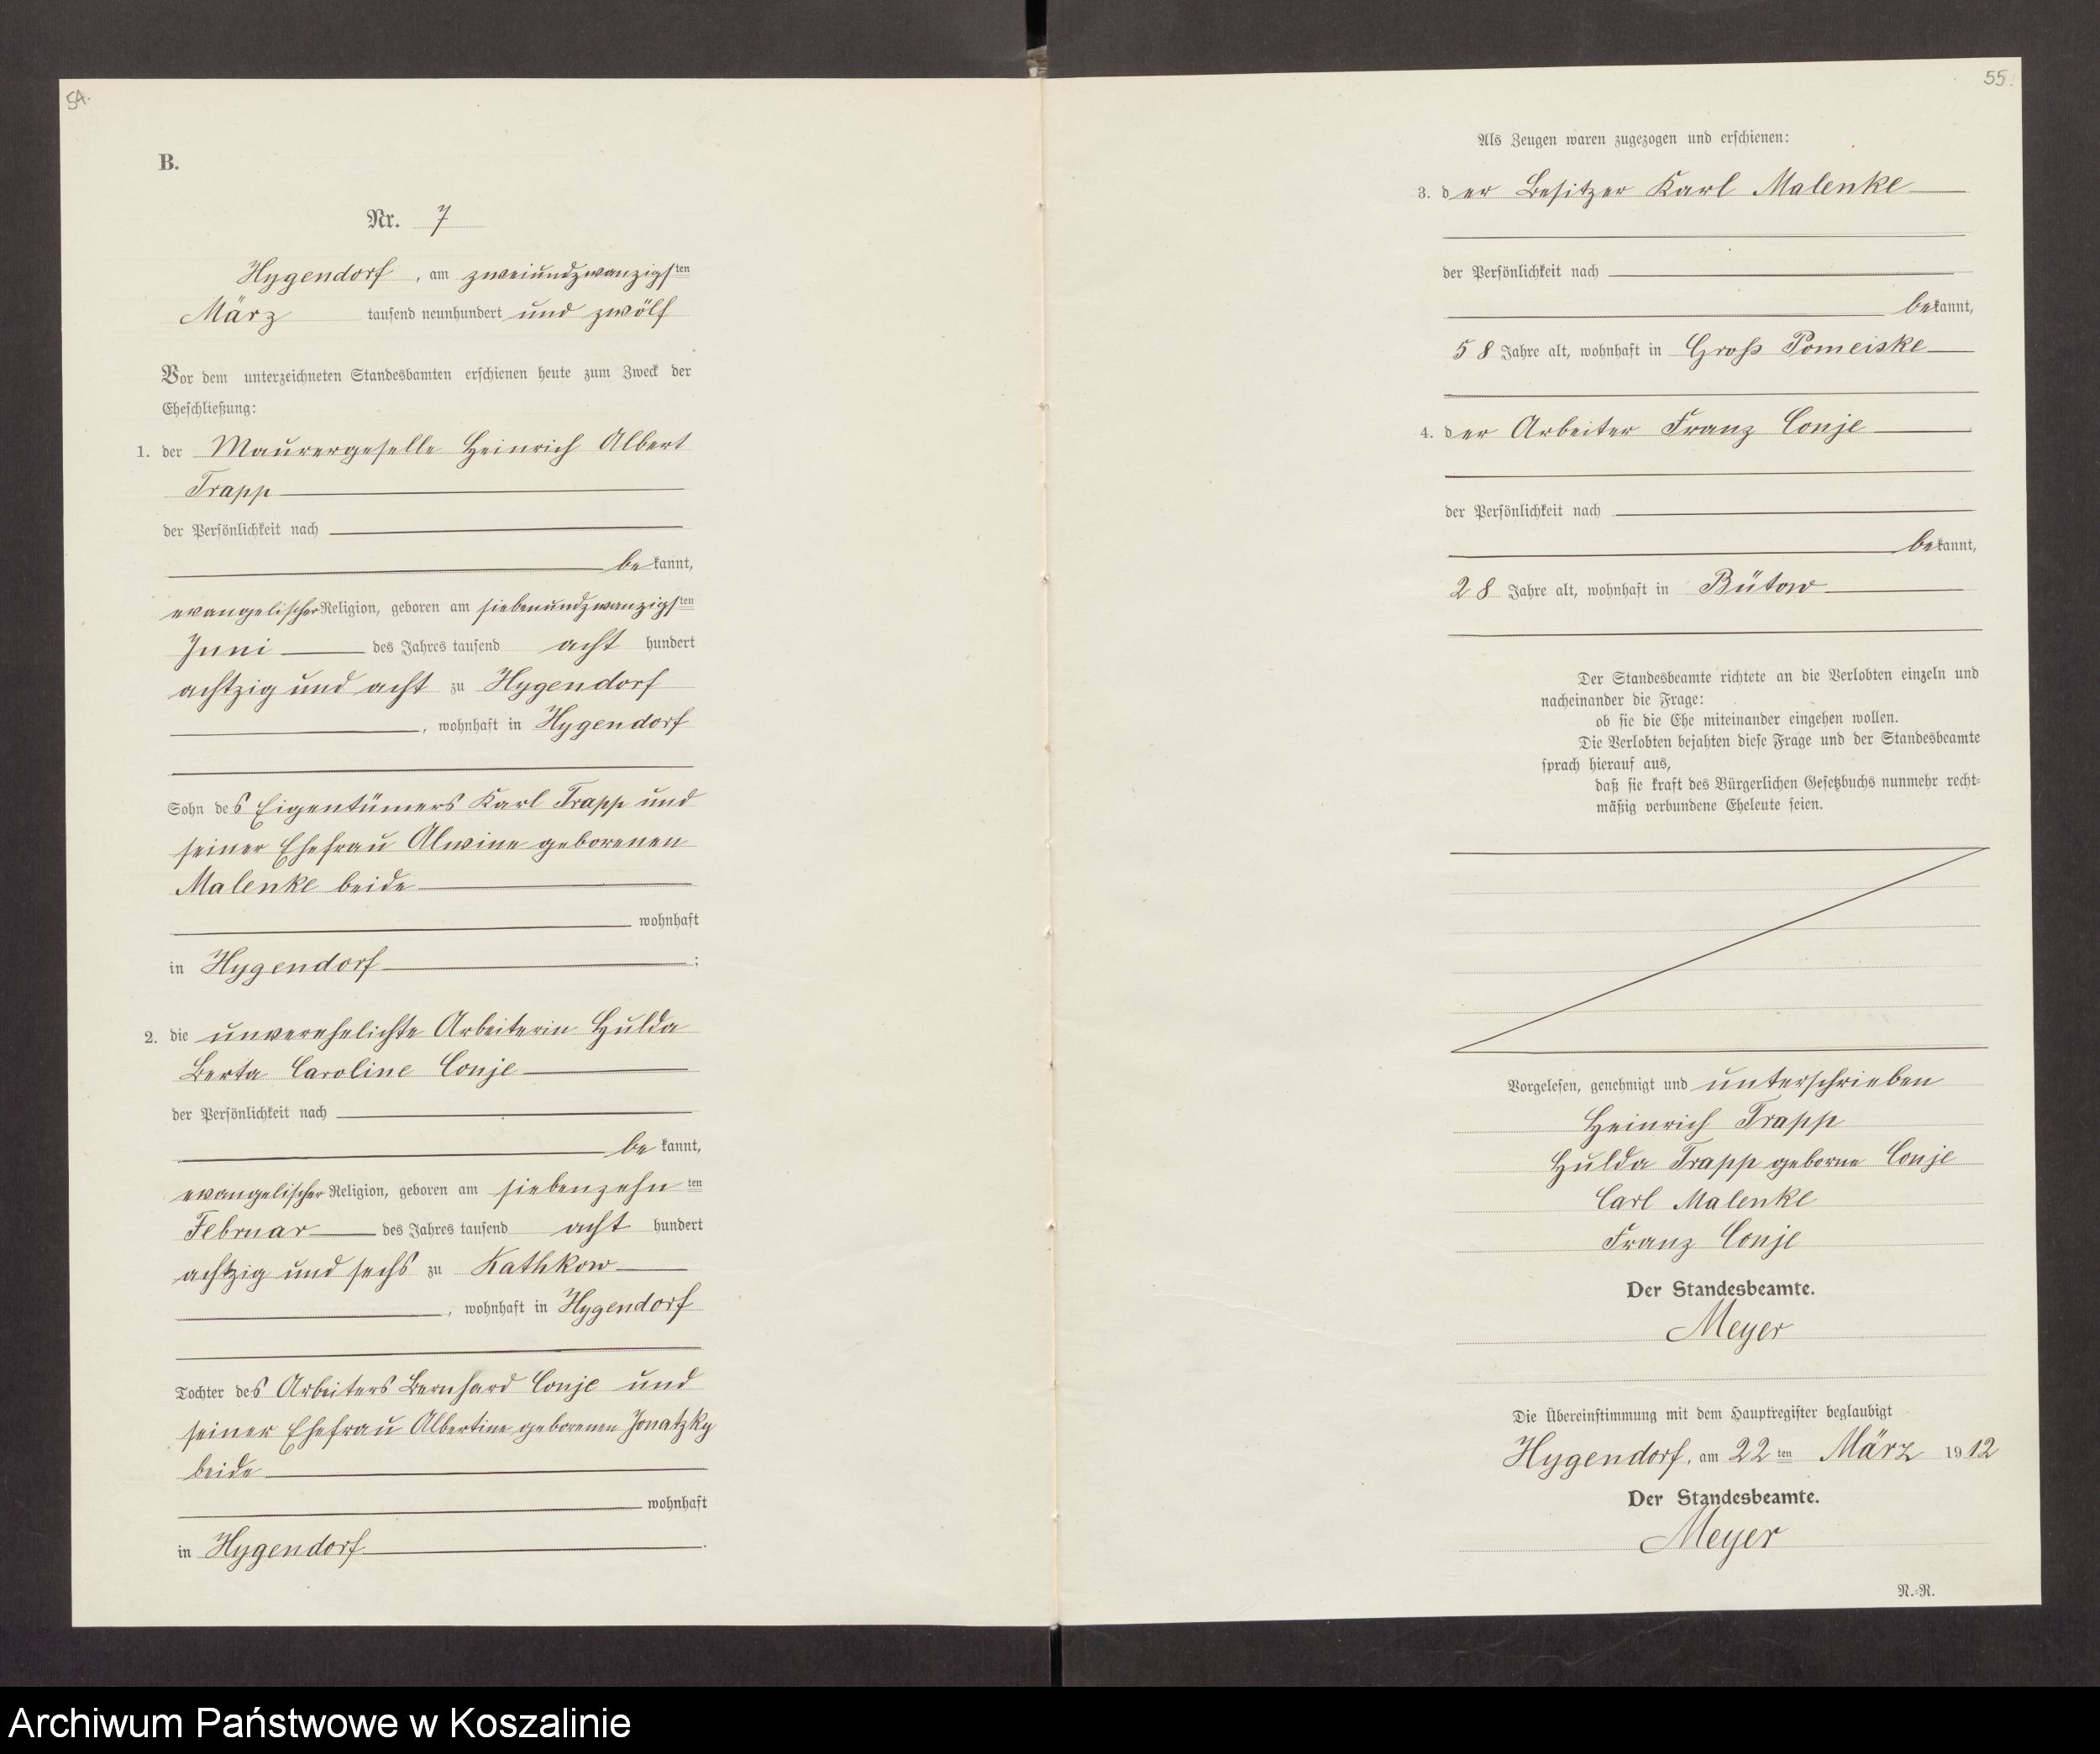 54.
B.
Nr. 7
Hygendorf, am zweiundzwanzigsten
März tausend neunhundert und zwölf
Vor dem unterzeichneten Standesbamten erschienen heute zum Zweck der
Eheschließung:
1. der Maurergeselle Heinrich Albert
Trapp
der Persönlichkeit nach
bekannt,
evangelischer Religion, geboren am siebenundzwanzigsten
Juni des Jahres tausend acht hundert
achtzig und acht zu Hygendorf
, wohnhaft in Hygendorf
Sohn des Eigentümers Karl Trapp und
seiner Ehefrau Alwine geborenen
Malenke beide
wohnhaft
in Hygendorf ;
2. die unverehelichte Arbeiterin Hulda
Berta Caroline Conje
der Persönlichkeit nach
bekannt,
evangelischer Religion, geboren am siebenzehn ten
Februar des Jahres tausend acht hundert
achtzig und sechs zu Kathkow
, wohnhaft in Hygendorf
Tochter des Arbeiters Bernhard Conje und
seiner Ehefrau Albertine geborenen Jonatzky
beide
wohnhaft
in Hygendorf .
55.
Als Zeugen waren zugezogen und erschienen:
3. der Besitzer Karl Malenke
der Persönlichkeit nach
bekannt,
58 Jahre alt, wohnhaft in Groß Pomeiske
4. der Arbeiter Franz Conje
der Persönlichkeit nach
bekannt,
28 Jahre alt, wohnhaft in Bütow
Der Standesbeamte richtete an die Verlobten einzeln und
nacheinander die Frage:
ob sie die Ehe miteinander eingehen wollen.
Die Verlobten bejahten diese Frage und der Standesbeamte
sprach hierauf aus,
daß sie kraft des Bürgerlichen Gesetzbuchs nunmehr recht-
mäßig verbundene Eheleute seien.
Vorgelesen, genehmigt und unterschrieben
Heinrich Trapp
Hulda Trapp geborne Conje
Carl Malenke
Franz Conje
Der Standesbeamte.
Meyer
Die Übereinstimmung mit dem Hauptregister beglaubigt
Hygendorf, am 22 ten März 1912
Der Standesbeamte.
Meyer
N.-R.
Archiwum Państwowe w Koszalinie